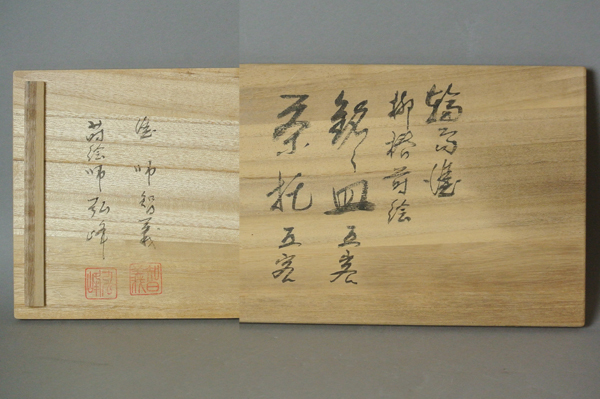 輪島塗
柳橋蒔絵
銘々皿 五客
茶托 五客
塗師 智義
蒔絵師 弘峰